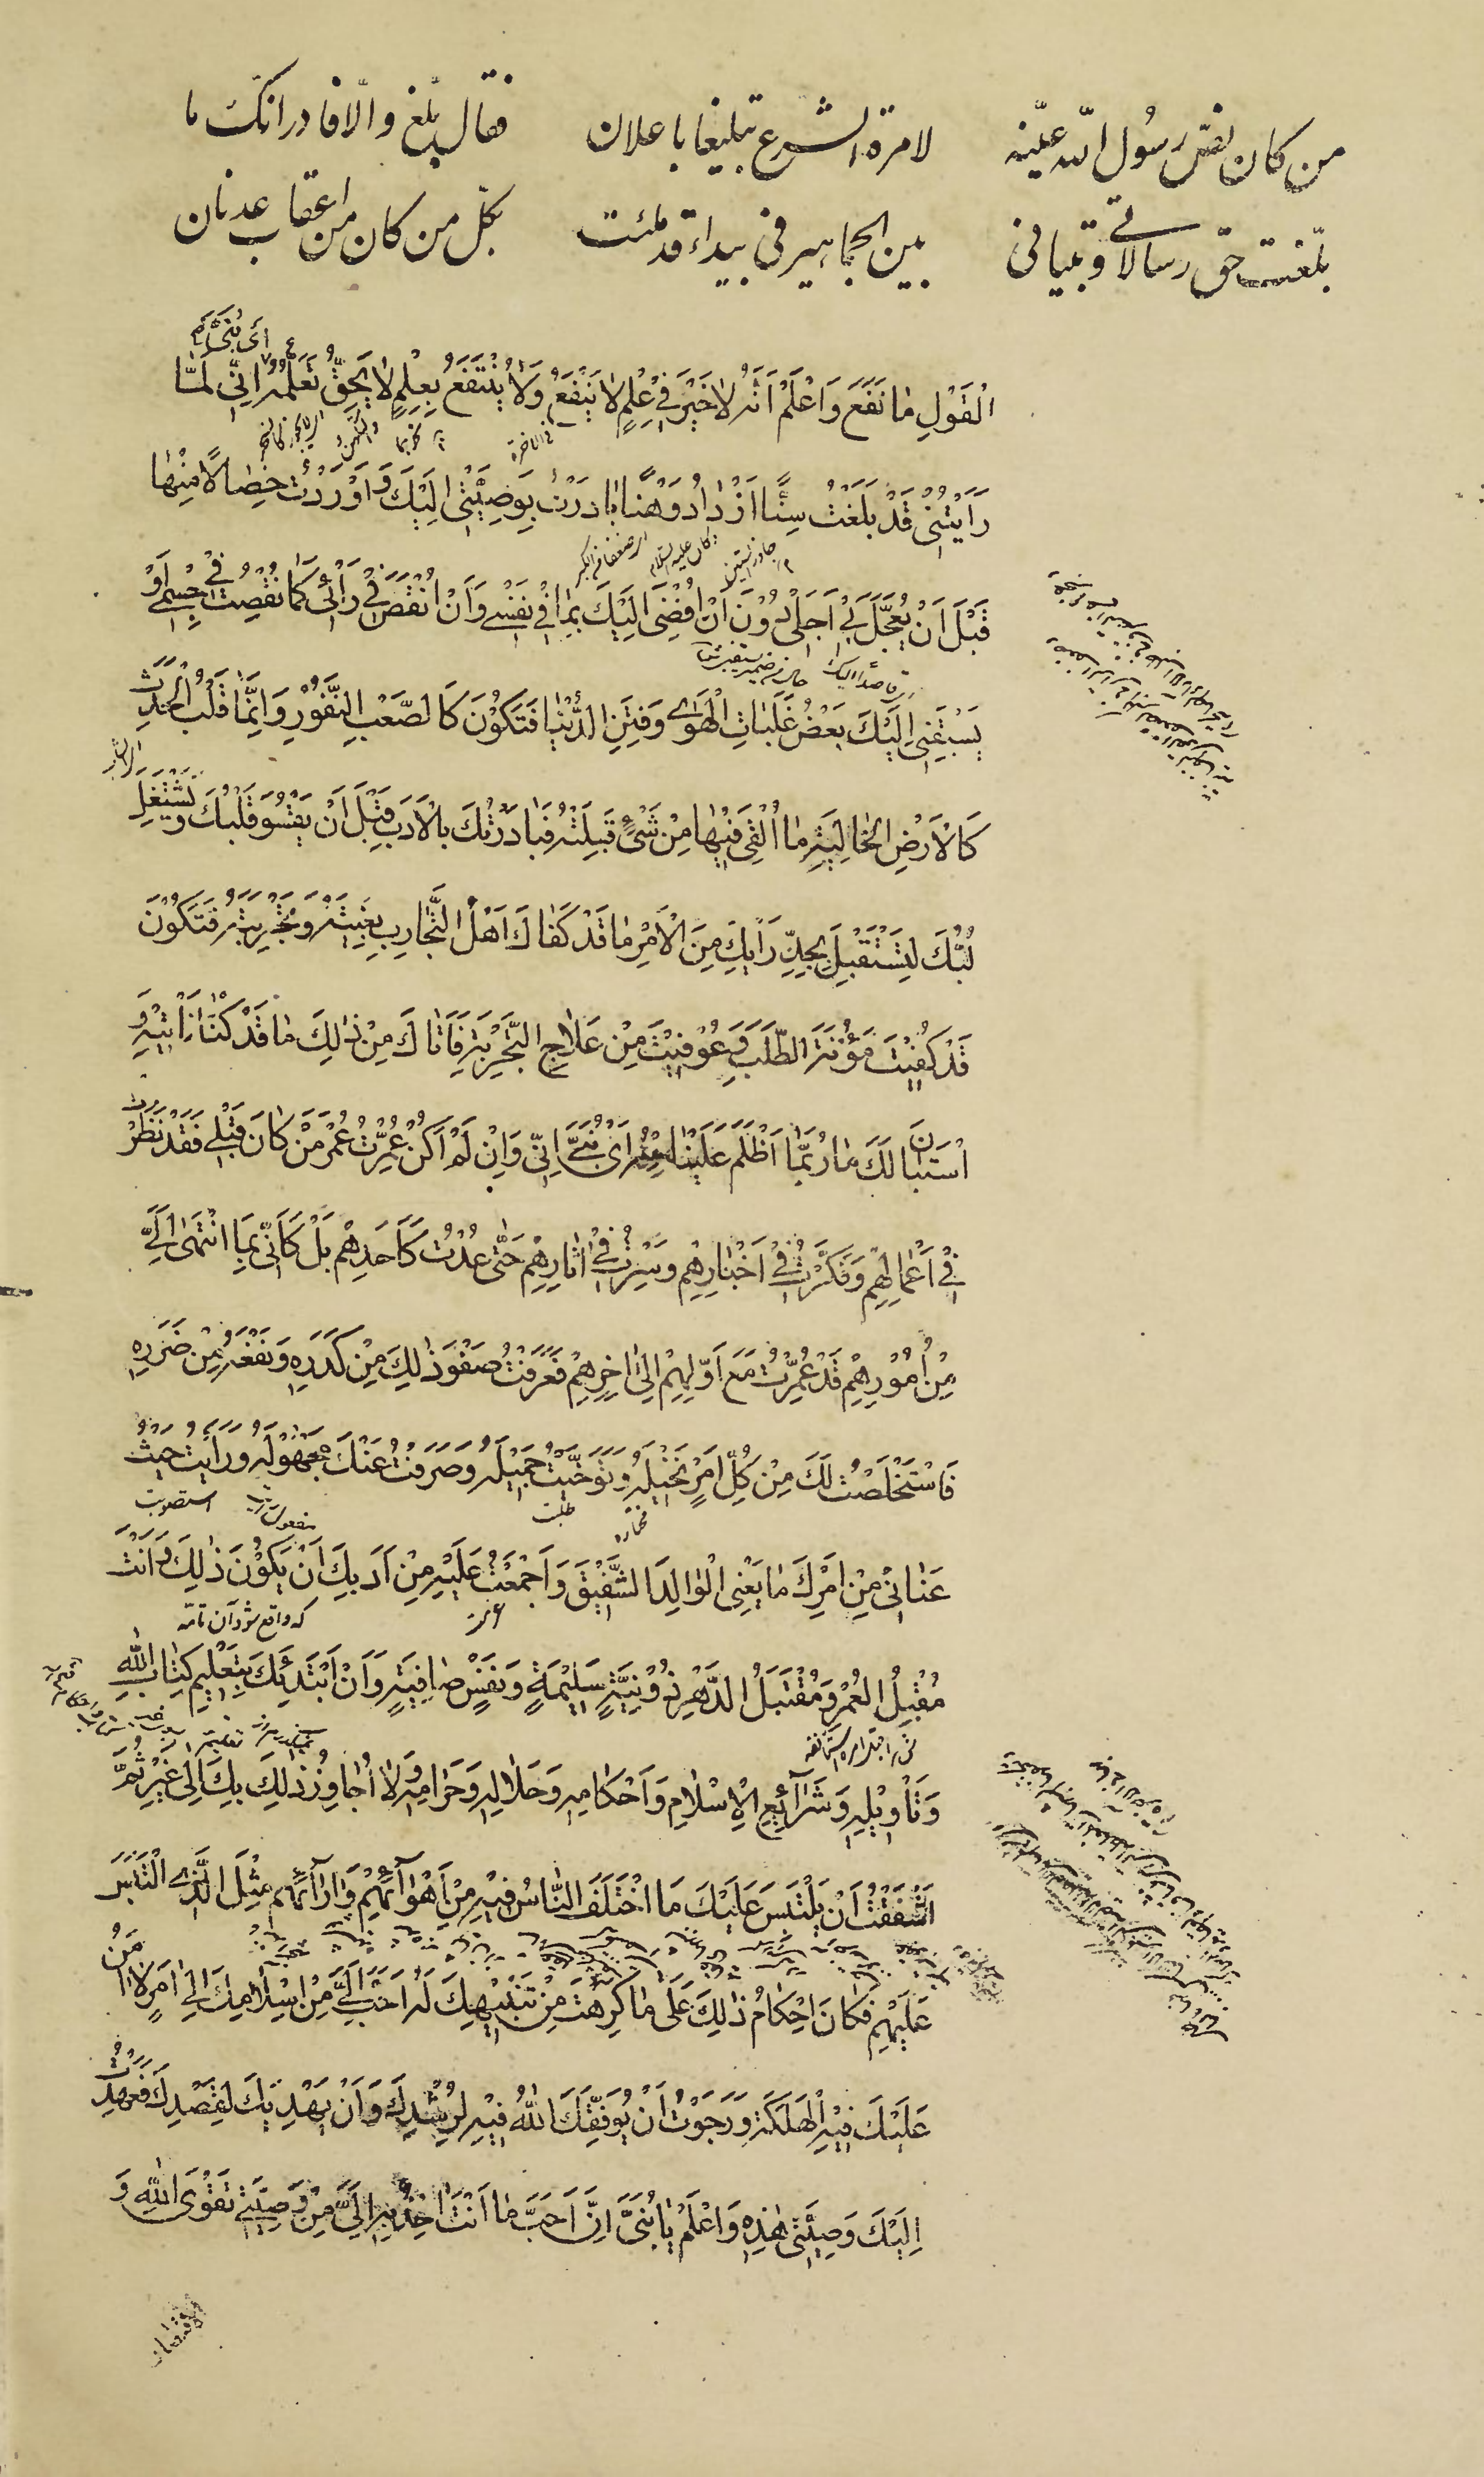 من كان نصّ رسول الله عيّنه لامرة الشرع تبليغا باعلان فقال بلّغ والّا فادر انك ما
بلّغت حق رسالاتي وتبياني بين الجماهير في بيداء قد ملئت بكل من كان من اعقاب عدنان
اَىْ بُنَىَّ
الْقَوْلِ مٰا نَفَعَ وَاَعْلَمْ اَنَّهُ لٰا خَيْرَ فِيْ عِلْمٍ لٰا يَنْفَعُ وَلٰا يُنْتَفَعُ بِعِلْمٍ لٰا يَحِقُّ تَعَلُّمُهُ اِنِّيْ لَمّٰا
رَاَيْتُنِيْ قَدْ بَلَغْتُ سِنًّا اَزْدٰادُ وَهْنًا بٰادَرْتُ بِوَصِيَّتِيْ اِلَيْكَ وَ اَوْرَدْتُ خِصٰالًا مِنْهٰا
جاوز الستين كان عليه السلام
قَبْلَ اَنْ يُعَجَّلَ بِيْ اَجَلِيْ دُوْنَ اَنْ اُفْضِيَ اِلَيْكَ بِمٰا فِيْ نَفْسِيْ وَاَنْ اُنْقَصَ فِيْ رَأْيِيْ كَمٰا نُقِصْتُ فِيْ جِسْمِيْ اَوْ
يَسْبِقَنِيْ اِلَيْكَ بَعْضُ غَلَبٰاتِ الْهَوٰى وَفِتَنِ الدُّنْيٰا فَتَكُوْنَ كَالصَّعْبِ النَّفُوْرِ وَاِنَّمٰا قَلْبُ الْحَدَثِ
كَالْاَرْضِ الْخٰالِيَةِ مٰا اُلْقِيَ فِيْهٰا مِنْ شَىْءٍ قَبِلَتْهُ فَبٰادَرْتُكَ بِالْاَدَبِ قَبْلَ اَنْ يَقْسُوَ قَلْبُكَ وَ يَشْتَغِلَ
لُبُّكَ لِتَسْتَقْبِلَ بِجِدِّ رَأْيِكَ مِنَ الْاَمْرِ مٰا قَدْ كَفٰاكَ اَهْلُ التَّجٰارِبِ بِغْيَتَهُ وَ تَجْرِبَتَهُ فَتَكُوْنَ
قَدْ كُفِيْتَ مَؤُنَةَ الطَّلَبِ وَ عُوْفِيْتَ مِنْ عِلٰاجِ التَّجْرِبَةِ فَاَتٰاكَ مِنْ ذٰلِكَ مٰا قَدْ كُنّٰا نَأْتِيْهِ وَ
اسْتَبٰانَ لَكَ مٰا رُبَّمٰا اَظْلَمَ عَلَيْنٰا مِنْهُ اَىْ بُنَيَّ اِنِّيْ وَاِنْ لَمْ اَكُنْ عُمِّرْتُ عُمْرَ مَنْ كٰانَ قَبْلِيْ فَقَدْ نَظَرْتُ
فِيْ اَعْمٰالِهِمْ وَفَكَّرْتُ فِيْ اَخْبٰارِهِمْ وَسِرْتُ فِيْ اٰثٰارِهِمْ حَتّٰى عُدْتُ كَاَحَدِهِمْ بَلْ كَاَنِّيْ بِمَا انْتَهٰى اِلَيَّ
مِنْ اُمُوْرِهِمْ قَدْ عُمِّرْتُ مَعَ اَوَّلِهِمْ اِلٰى اٰخِرِهِمْ فَعَرَفْتُ صَفْوَ ذٰلِكَ مِنْ كَدَرِهِ وَنَفْعَهُ مِنْ ضَرَرِهِ
فَاسْتَخْلَصْتُ لَكَ مِنْ كُلِّ اَمْرٍ نَخِيْلَهُ وَ تَوَخَّيْتُ جَمِيْلَهُ وَصَرَفْتُ عَنْكَ مَجْهُوْلَهُ وَ رَاَيْتُ حَيْثُ
مختاره طلبت مفعول رايت استصوبت
عَنٰانِيْ مِنْ اَمْرِكَ مٰا يَعْنِي الْوٰالِدَ الشَّفِيْقَ وَاَجْمَعْتُ عَلَيْهِ مِنْ اَدَبِكَ اَنْ يَكُوْنَ ذٰلِكَ وَ اَنْتَ
كه واقع شود آن
مُقْبِلُ الْعُمْرِ وَ مُقْتَبَلُ الدَّهْرِ ذُوْ نِيَّةٍ سَلِيْمَةٍ وَ نَفْسٍ صٰافِيَةٍ وَ اَنْ اَبْتَدِئَكَ بِتَعْلِيْمِ كِتٰابِ اللهِ
وَتَأْوِيْلِهِ وَ شَرٰآئِعِ الْاِسْلٰامِ وَ اَحْكٰامِهِ وَ حَلٰالِهِ وَ حَرٰامِهِ وَ لٰا اُجٰاوِزُ ذٰلِكَ بِكَ اِلٰى غَيْرِهِ ثُمَّ
اَشْفَقْتُ اَنْ يَلْتَبِسَ عَلَيْكَ مَا اخْتَلَفَ النّٰاسُ فِيْهِ مِنْ اَهْوٰآئِهِمْ وَ اٰرٰآئِهِمْ مِثْلَ الَّذِى الْتَبَسَ
عَلَيْهِمْ فَكٰانَ اِحْكٰامُ ذٰلِكَ عَلٰى مٰا كَرِهْتُ مِنْ تَنْبِيْهِكَ لَهُ اَحَبَّ اِلَيَّ مِنْ اِسْلٰامِكَ اِلٰى اَمْرٍ لٰا اٰمَنُ
عَلَيْكَ فِيْهِ الْهَلَكَةَ وَ رَجَوْتُ اَنْ يُوَفِّقَكَ اللهُ فِيْهِ لِرُشْدِكَ وَ اَنْ يَهْدِيَكَ لِقَصْدِكَ فَعَهِدْتُ
اِلَيْكَ وَصِيَّتِيْ هٰذِهِ وَاعْلَمْ يٰا بُنَيَّ اِنَّ اَحَبَّ مٰا اَنْتَ اٰخِذٌ بِهِ اِلَيَّ مِنْ وَصِيَّتِيْ تَقْوَى اللهِ وَ